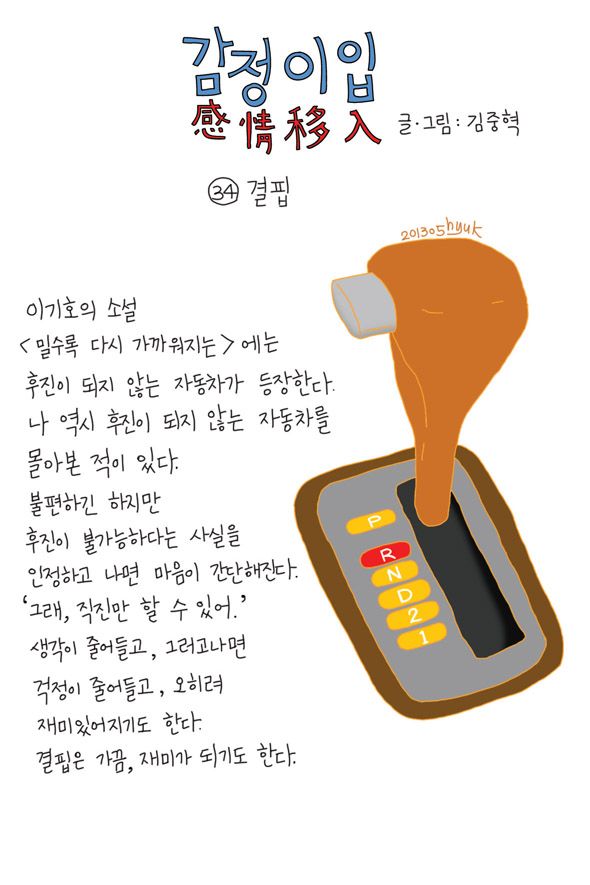 감정이입
感情移入
글·그림 : 김중혁
34 결핍
201305 hyuk
이기호의 소설
<밀수록 다시 가까워지는>에는
후진이 되지 않는 자동차가 등장한다.
나 역시 후진이 되지 않는 자동차를
몰아본 적이 있다.
불편하긴 하지만
후진이 불가능하다는 사실을
인정하고 나면 마음이 간단해진다.
'그래, 직진만 할 수 있어.'
생각이 줄어들고, 그러고나면
걱정이 줄어들고, 오히려
재미있어지기도 한다.
결핍은 가끔, 재미가 되기도 한다.
P
R
N
D
2
1